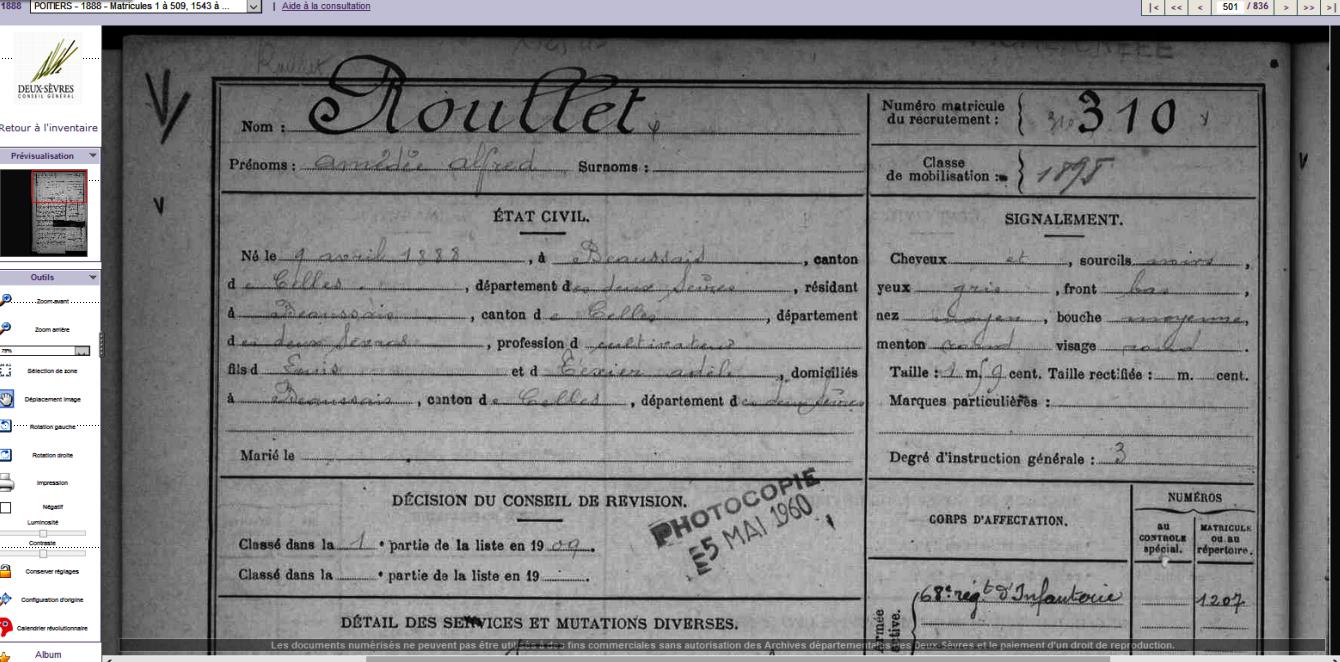 1888 POITIERS - 1888 - Matricules 1 à 509, 1543 à ... | Aide à la consultation |< << < 501 / 836 > >> >|
DEUX-SÈVRES
CONSEIL GÉNÉRAL
Retour à l'inventaire
Prévisualisation
Outils
Zoom avant
Zoom arrière
75%
Sélection de zone
Déplacement image
Rotation gauche
Rotation droite
Impression
Négatif
Luminosité
Contraste
Conserver réglages
Configuration d'origine
Calendrier révolutionnaire
Album
Roullet
Nom : Roullet
Numéro matricule
du recrutement : 310 310
Prénoms : amédée alfred Surnoms :
Classe
de mobilisation : 1898
ÉTAT CIVIL.
Né le 9 avril 1888, à Beaussais, canton
de Celles, département des deux Sèvres, résidant
à Beaussais, canton de Celles, département
des deux Sèvres, profession d cultivateur
fils d et d Texier adèle, domiciliés
à Beaussais, canton de Celles, département des deux Sèvres
Marié le
SIGNALEMENT.
Cheveux et, sourcils noirs,
yeux gris, front bas,
nez moyen, bouche moyenne,
menton rond visage rond.
Taille : 1 m. 59 cent. Taille rectifiée : m. cent.
Marques particulières :
Degré d'instruction générale : 3
DÉCISION DU CONSEIL DE REVISION.
Classé dans la 1e partie de la liste en 1909.
Classé dans la e partie de la liste en 19 .
PHOTOCOPIE
5 MAI 1960
DÉTAIL DES SERVICES ET MUTATIONS DIVERSES.
CORPS D'AFFECTATION.
NUMÉROS
au
CONTROLE
spécial.
MATRICULE
ou au
répertoire.
Armée
active.
68e régt d'Infanterie 1207
Les documents numérisés ne peuvent pas être utilisés à des fins commerciales sans autorisation des Archives départementales des Deux-Sèvres et le paiement d'un droit de reproduction.